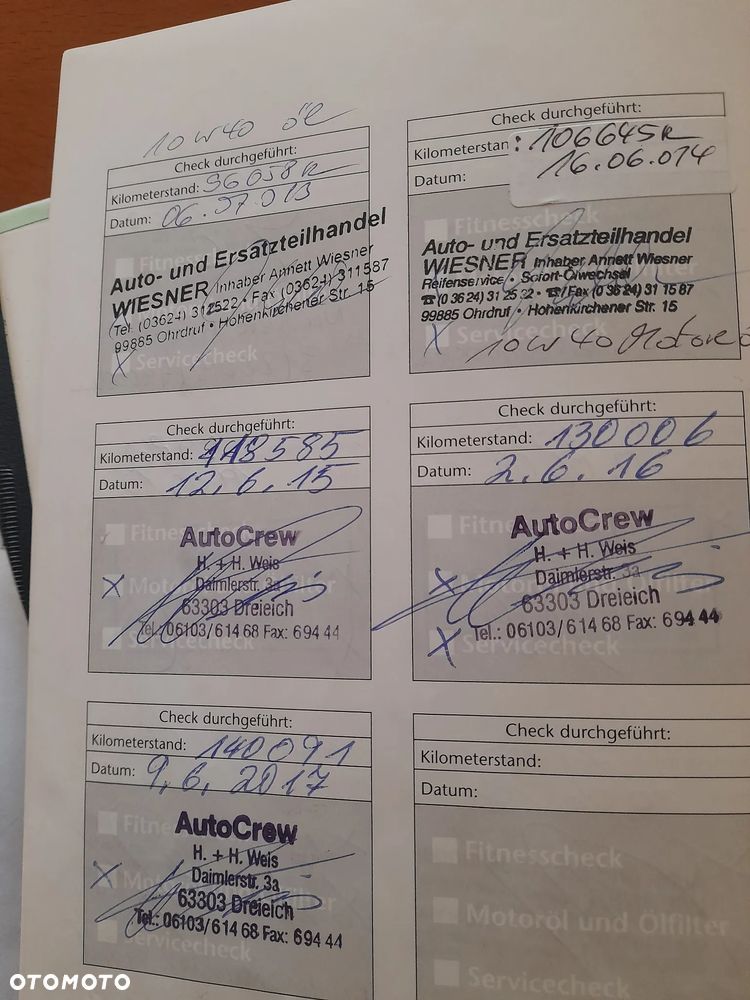 10 w 40 öl
Check durchgeführt:
Kilometerstand: 96058
Datum: 06.07.013
Fitnesscheck
Auto- und Ersatzteilhandel
WIESNER Inhaber Annett Wiesner
Tel. (03624) 312522 • Fax (03624) 311587
99885 Ohrdruf • Hohenkirchener Str. 15
X Servicecheck
Check durchgeführt:
Kilometerstan : 106645
Datum: 16.06.014
Fitnesscheck
Auto- und Ersatzteilhandel
WIESNER Inhaber Annett Wiesner
Reifenservice • Sofort-Ölwechsel
☎ (0 36 24) 31 25 22 • ☎/Fax (0 36 24) 31 15 87
99885 Ohrdruf • Hohenkirchener Str. 15
X Servicecheck
10 w 40 Motorö
Check durchgeführt:
Kilometerstand: 118585
Datum: 12.6.15
Fitnesscheck
AutoCrew
H. + H. Weis
X Daimlerstr. 3a
63303 Dreieich
Tel.: 06103/614 68 Fax: 694 44
Servicecheck
Check durchgeführt:
Kilometerstand: 130006
Datum: 2.6.16
AutoCrew
H. + H. Weis
X Daimlerstr. 3a
63303 Dreieich
Tel.: 06103/614 68 Fax: 694 44
X Servicecheck
Check durchgeführt:
Kilometerstand: 140091
Datum: 9.6.2017
AutoCrew
H. + H. Weis
X Daimlerstr. 3a
63303 Dreieich
Tel.: 06103/614 68 Fax: 694 44
Servicecheck
Check durchgeführt:
Kilometerstand:
Datum:
Fitnesscheck
Motoröl und Ölfilter
Servicecheck
OTOMOTO